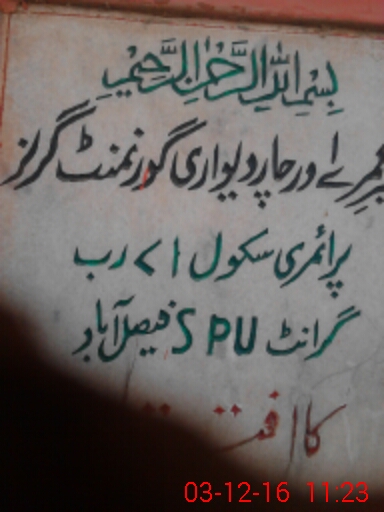 بِسْمِ اللهِ الرَّحْمٰنِ الرَّحِيْمِ
کمرے اور چار دیواری گورنمنٹ گرلز
پرائمری سکول 71 ر ب
گرانٹ SPU فیصل آباد
کا افتتاح
03-12-16 11:23